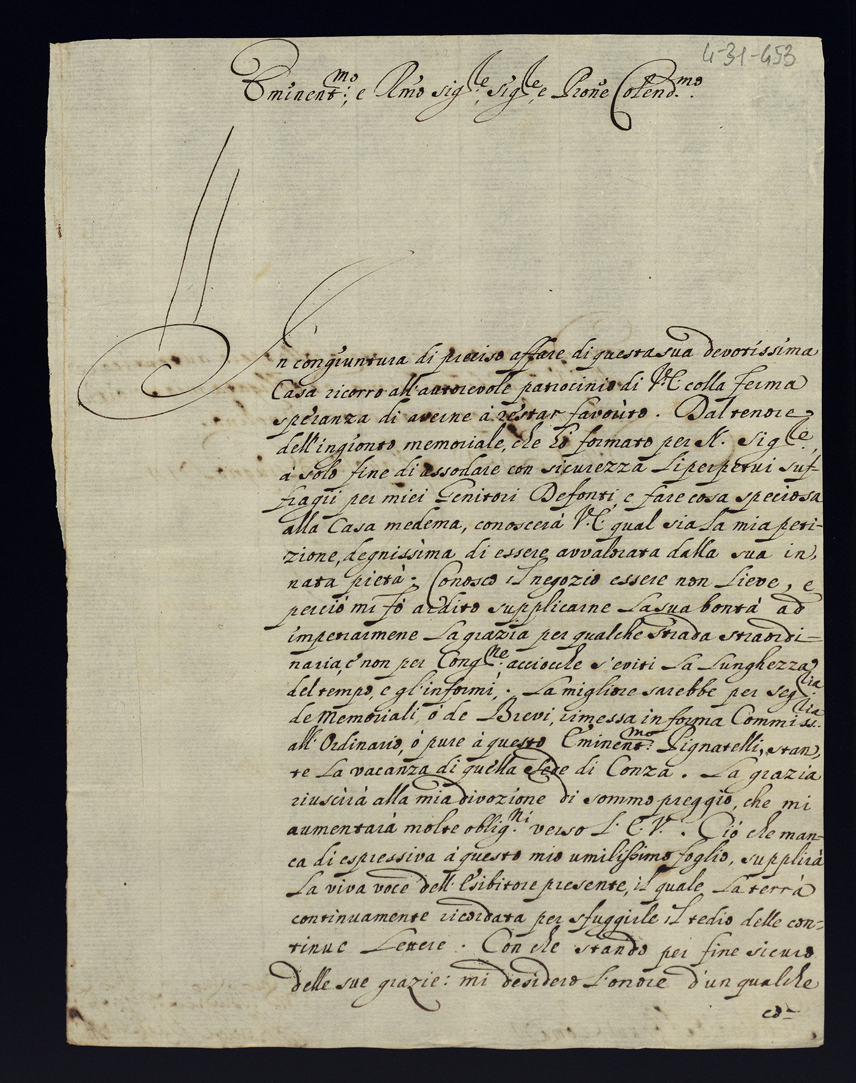 4-31-453
Eminent.mo, e Rmo Sig.re, Sig.re, e Prone Colend.mo
In congiuntura di preciso affare di questa sua devotissima
Casa ricorro all'autorevole patrocinio di V.E. colla ferma
speranza di averne à restar favorito. Dal tenore
dell'ingionto memoriale, che hò formato per N. Sig.re,
à solo fine di assodare con sicurezza li perpetui suf-
fragii per miei Genitori Defonti, e fare cosa speciosa
alla Casa medema, conoscerà V.E. qual sia la mia peti-
zione, degnissima di essere avvalorata dalla sua in,
nata pietà. Conosco il negozio essere non lieve, e
perciò mi fò ardito supplicarne la sua bontà ad
impetrarmene la grazia per qualche strada straordi-
naria, e non per Cong.ne acciocche s'eviti la lunghezza
del tempo, e gl'informi,. La migliore sarebbe per Seg.ria
de Memoriali, ò de Brevi, rimessa in forma Commiss.ria
all'Ordinario, ò pure à questo Eminent.mo Pignatelli, stan,
te la vacanza di quella Sede di Conza. La grazia
riuscirà alla mia divozione di sommo preggio, che mi
aumentarà molte oblig.ni verso l'E.V.. Ciò che man-
ca di espressiva à questo mio umilissimo foglio, supplirà
la viva voce dell'Esibitore presente, il quale la terrà
continuamente ricordata per sfuggirle il tedio delle con-
tinue lettere. Con che stando per fine sicuro
delle sue grazie: mi desidero l'onore d'un qualche
co-